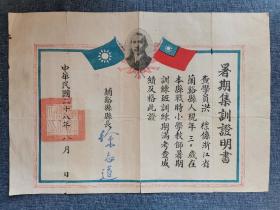 暑期集訓證明書
查學員洪 樑係浙江省
蘭谿縣人現年三〇歲在
本縣戰時小學教師暑期
訓練班訓練期滿考查成
績及格此證
蘭谿縣縣長
中華民國二十八年八月 日